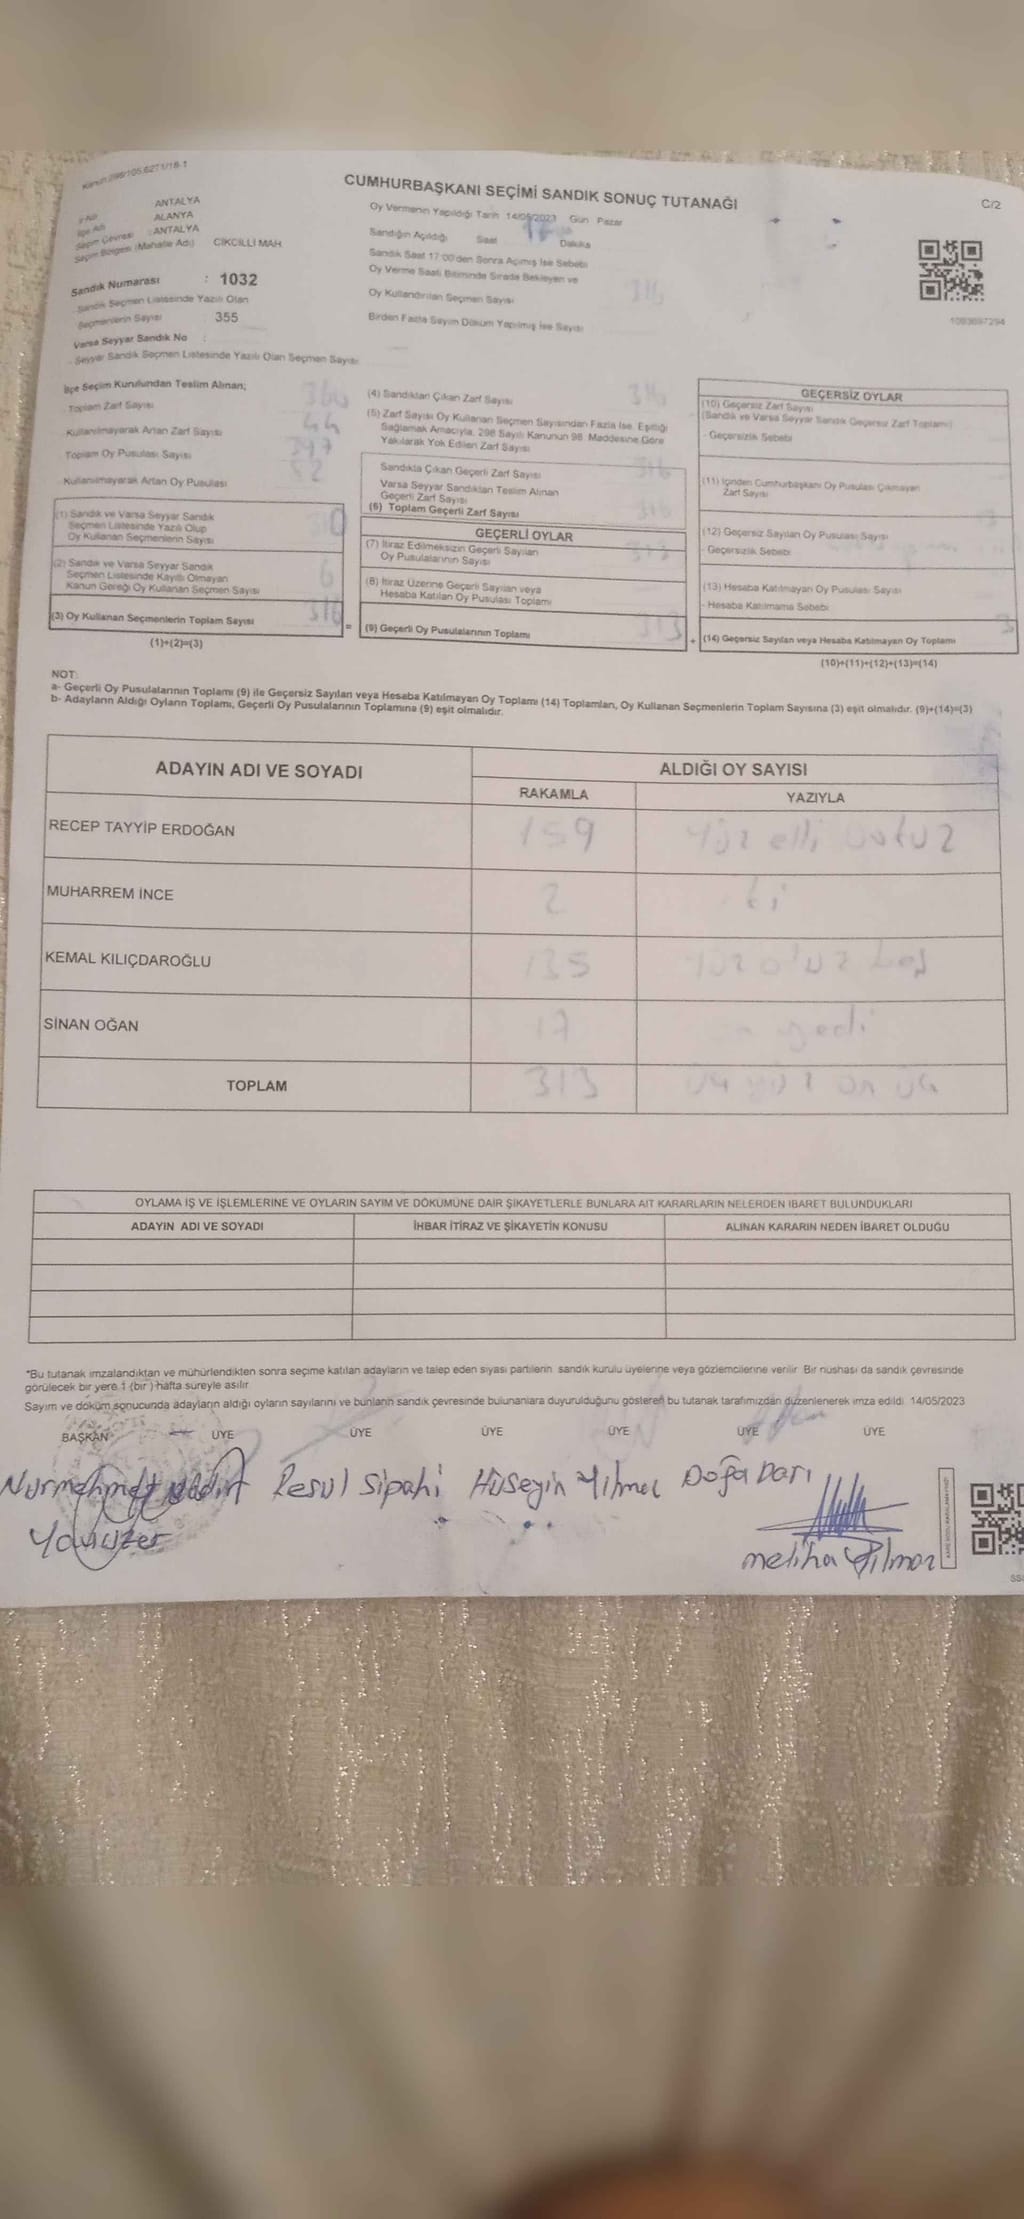 CUMHURBAŞKANI SEÇİMİ SANDIK SONUÇ TUTANAĞI
C/2
ANTALYA
ALANYA
Seçim Çevresi : ANTALYA
Seçim Bölgesi (Mahalle Adı) CİKCİLLİ MAH.
Sandık Numarası : 1032
Sandık Seçmen Listesinde Yazılı Olan
Seçmenlerin Sayısı 355
Varsa Seyyar Sandık No :
Seyyar Sandık Seçmen Listesinde Yazılı Olan Seçmen Sayısı
Oy Vermenin Yapıldığı Tarih 14/05/2023 Gün Pazar
Sandığın Açıldığı Saat 17 Dakika
Sandık Saat 17:00'den Sonra Açılmış İse Sebebi
Oy Verme Saati Bitiminde Sırada Bekleyen ve
Oy Kullandırılan Seçmen Sayısı
Birden Fazla Sayım Döküm Yapılmış İse Sayısı
1093697294
İlçe Seçim Kurulundan Teslim Alınan;
Toplam Zarf Sayısı 360
Kullanılmayarak Artan Zarf Sayısı 44
Toplam Oy Pusulası Sayısı 397
Kullanılmayarak Artan Oy Pusulası 82
(1) Sandık ve Varsa Seyyar Sandık
Seçmen Listesinde Yazılı Olup
Oy Kullanan Seçmenlerin Sayısı 310
(2) Sandık ve Varsa Seyyar Sandık
Seçmen Listesinde Kayıtlı Olmayan
Kanun Gereği Oy Kullanan Seçmen Sayısı 6
(3) Oy Kullanan Seçmenlerin Toplam Sayısı 316
=
(1)+(2)=(3)
(4) Sandıktan Çıkan Zarf Sayısı 316
(5) Zarf Sayısı Oy Kullanan Seçmen Sayısından Fazla İse, Eşitliği
Sağlamak Amacıyla, 298 Sayılı Kanunun 98. Maddesine Göre
Yakılarak Yok Edilen Zarf Sayısı
Sandıkta Çıkan Geçerli Zarf Sayısı 316
Varsa Seyyar Sandıktan Teslim Alınan
Geçerli Zarf Sayısı
(6) Toplam Geçerli Zarf Sayısı 316
GEÇERLİ OYLAR
(7) İtiraz Edilmeksizin Geçerli Sayılan
Oy Pusulalarının Sayısı 313
(8) İtiraz Üzerine Geçerli Sayılan veya
Hesaba Katılan Oy Pusulası Toplamı
(9) Geçerli Oy Pusulalarının Toplamı 313
+
GEÇERSİZ OYLAR
(10) Geçersiz Zarf Sayısı
(Sandık ve Varsa Seyyar Sandık Geçersiz Zarf Toplamı)
- Geçersizlik Sebebi
(11) İçinden Cumhurbaşkanı Oy Pusulası Çıkmayan
Zarf Sayısı
(12) Geçersiz Sayılan Oy Pusulası Sayısı
- Geçersizlik Sebebi
(13) Hesaba Katılmayan Oy Pusulası Sayısı
- Hesaba Katılmama Sebebi
(14) Geçersiz Sayılan veya Hesaba Katılmayan Oy Toplamı 3
(10)+(11)+(12)+(13)=(14)
NOT:
a- Geçerli Oy Pusulalarının Toplamı (9) ile Geçersiz Sayılan veya Hesaba Katılmayan Oy Toplamı (14) Toplamları, Oy Kullanan Seçmenlerin Toplam Sayısına (3) eşit olmalıdır. (9)+(14)=(3)
b- Adayların Aldığı Oyların Toplamı, Geçerli Oy Pusulalarının Toplamına (9) eşit olmalıdır.
ADAYIN ADI VE SOYADI
ALDIĞI OY SAYISI
RAKAMLA YAZIYLA
RECEP TAYYİP ERDOĞAN 159 yüz elli
MUHARREM İNCE 2
KEMAL KILIÇDAROĞLU 135
SİNAN OĞAN 17 on yedi
TOPLAM 313 üç yüz on üç
OYLAMA İŞ VE İŞLEMLERİNE VE OYLARIN SAYIM VE DÖKÜMÜNE DAİR ŞİKAYETLERLE BUNLARA AİT KARARLARIN NELERDEN İBARET BULUNDUKLARI
ADAYIN ADI VE SOYADI İHBAR İTİRAZ VE ŞİKAYETİN KONUSU ALINAN KARARIN NEDEN İBARET OLDUĞU
*Bu tutanak imzalandıktan ve mühürlendikten sonra seçime katılan adayların ve talep eden siyasi partilerin sandık kurulu üyelerine veya gözlemcilerine verilir. Bir nüshası da sandık çevresinde
görülecek bir yere 1 (bir ) hafta süreyle asılır.
Sayım ve döküm sonucunda adayların aldığı oyların sayılarını ve bunların sandık çevresinde bulunanlara duyurulduğunu gösteren bu tutanak tarafımızdan düzenlenerek imza edildi. 14/05/2023
BAŞKAN ÜYE ÜYE ÜYE ÜYE ÜYE ÜYE
Nurmehmet Resul Sipahi Hüseyin Yılmaz Doğa Darı
Yavuzer
meliha Yılmaz